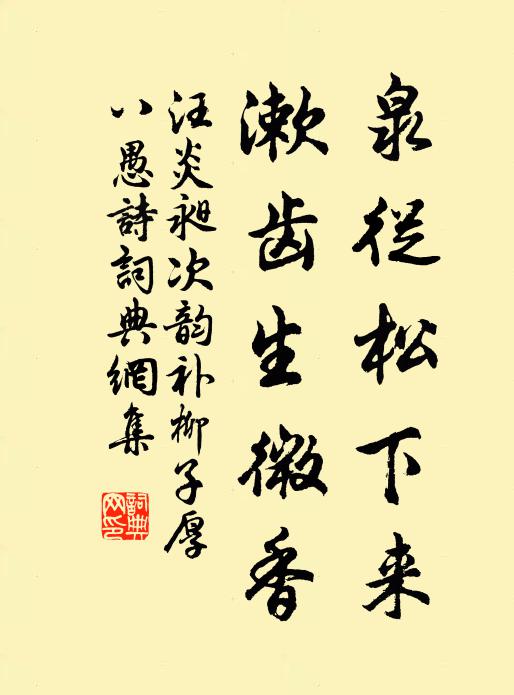 泉從松下来
漱齿生微香
汪炎昶次韵补柳子厚
八愚詩詞典網集
詞典网印